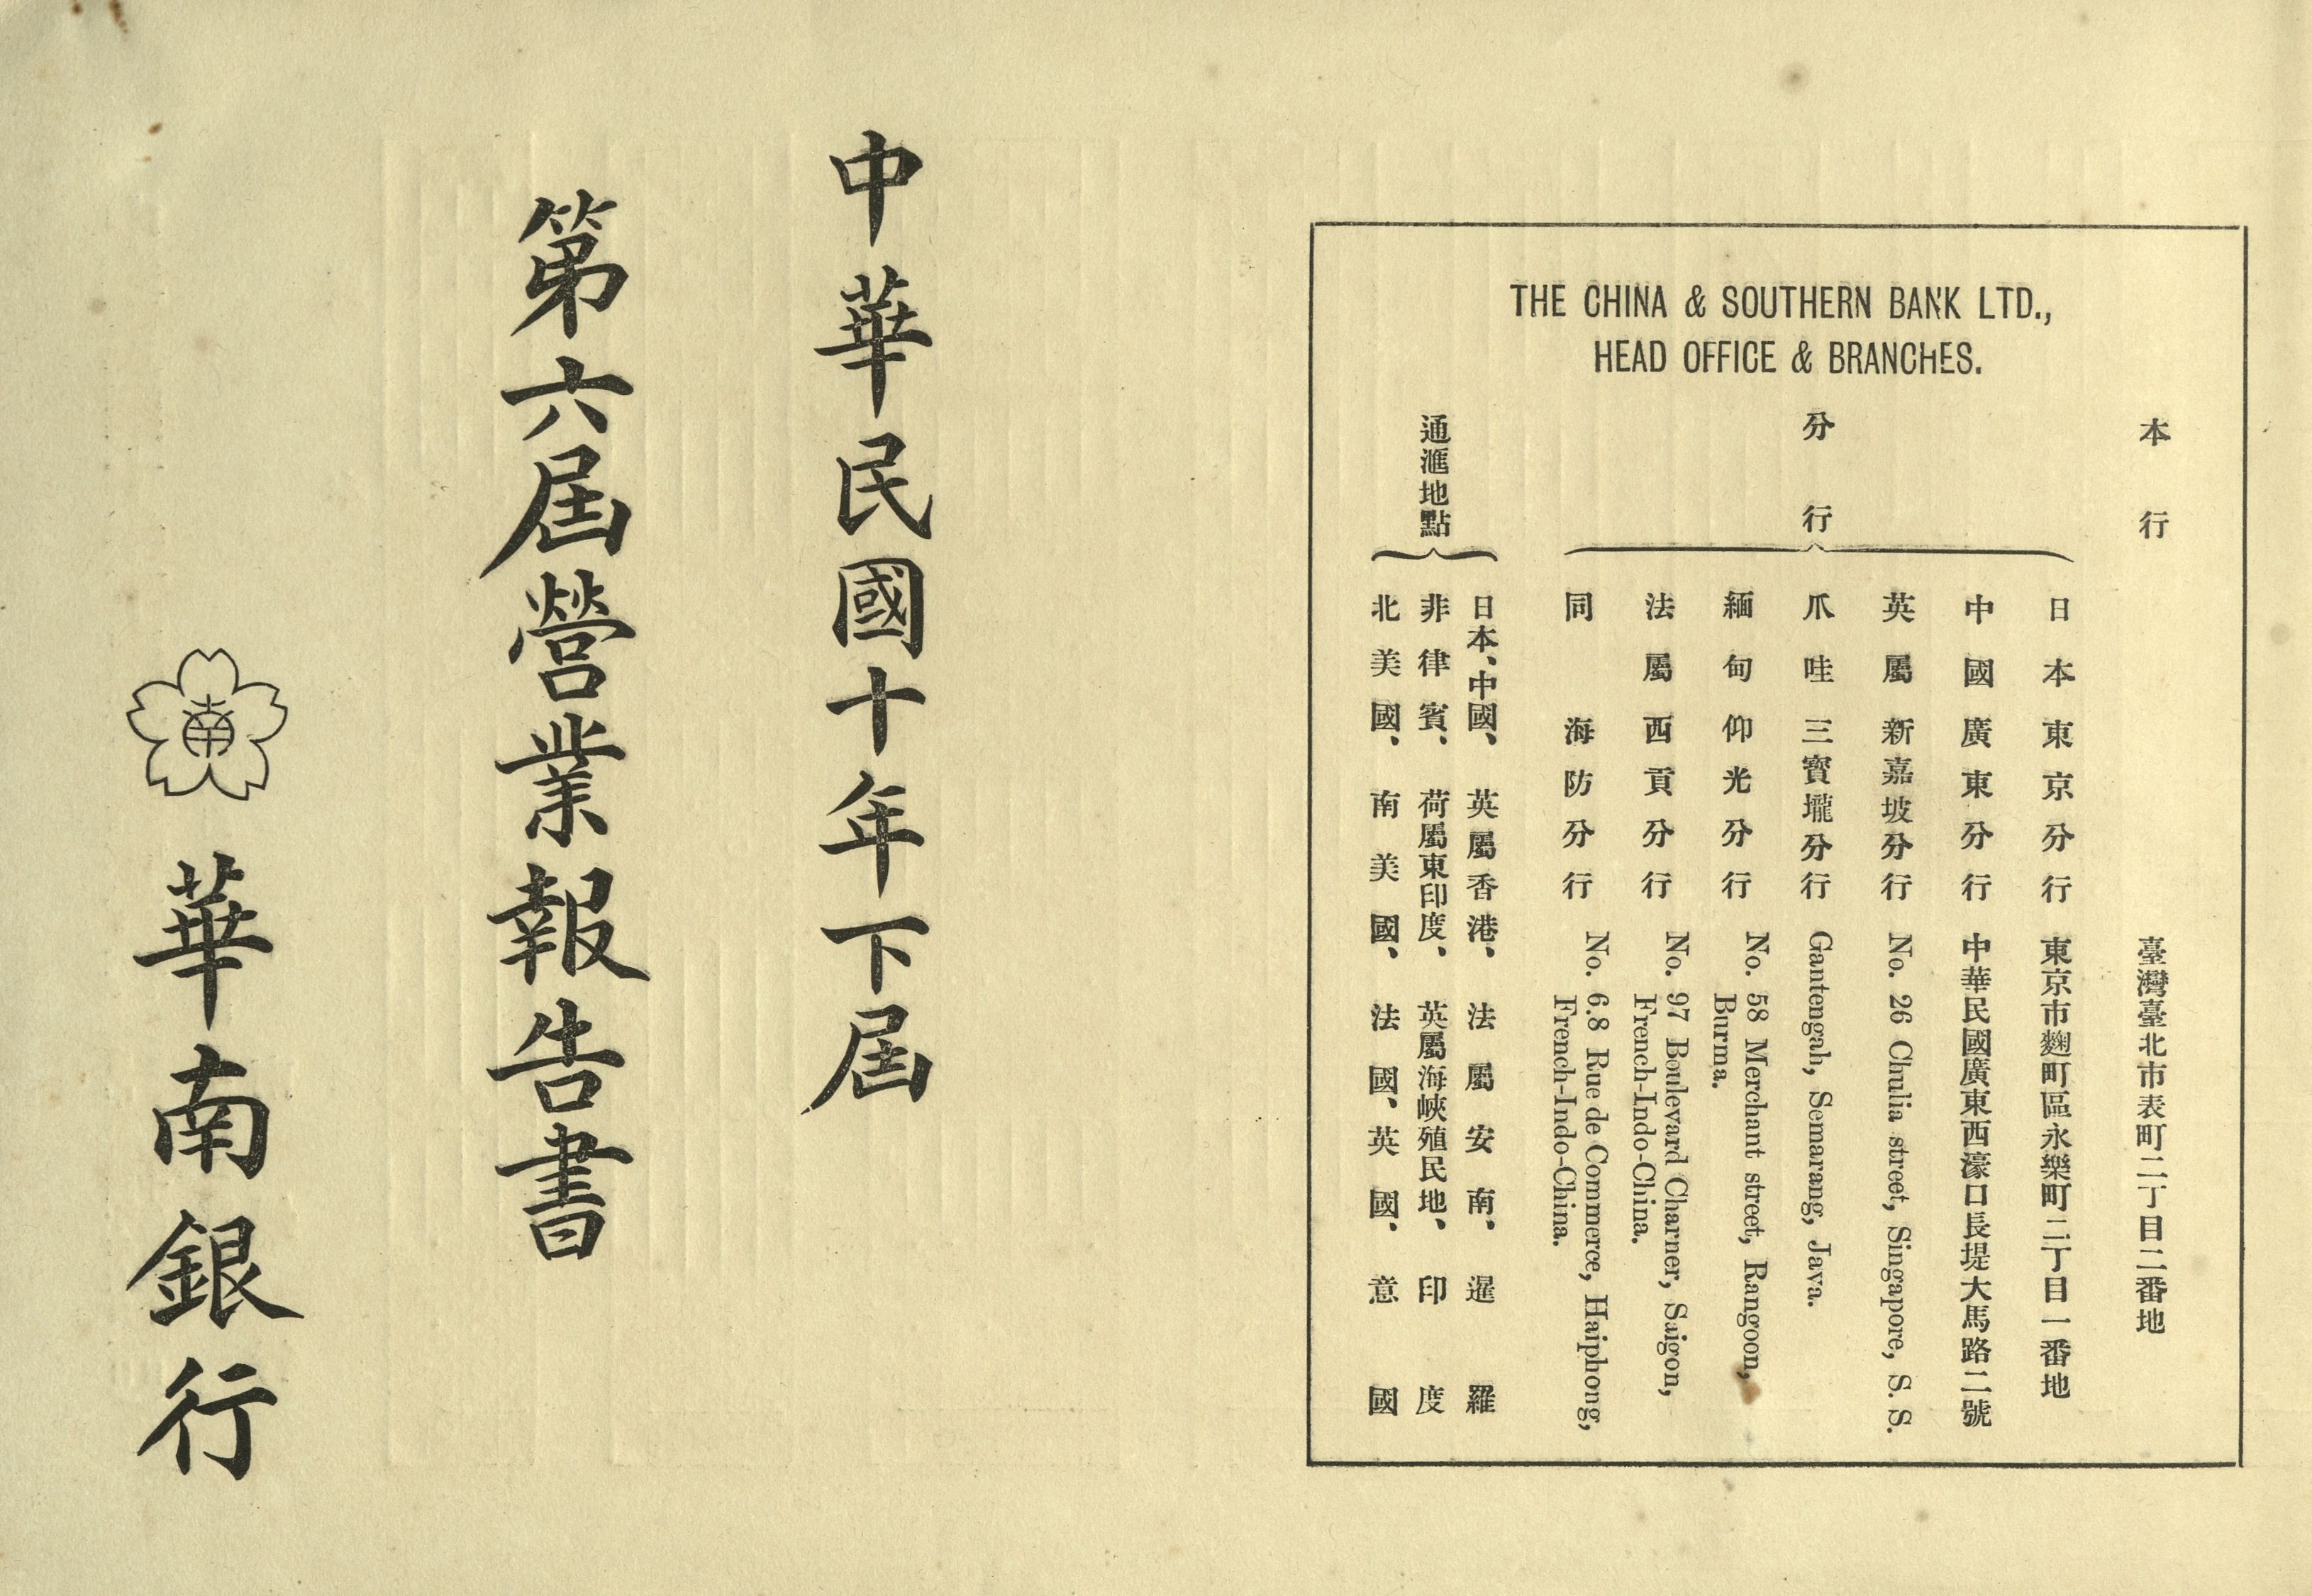 THE CHINA & SOUTHERN BANK LTD.,
HEAD OFFICE & BRANCHES.
本行
臺灣臺北市表町二丁目二番地
分行
日本東京分行 東京市麴町區永樂町二丁目一番地
中國廣東分行 中華民國廣東西濠口長堤大馬路二號
英屬新嘉坡分行 No. 26 Chulia street, Singapore, S. S.
爪哇三寶壠分行 Gantengah, Semarang, Java.
緬甸仰光分行 No. 58 Merchant street, Rangoon,
Burma.
法屬西貢分行 No. 97 Boulevard Charner, Saigon,
French-Indo-China.
同海防分行 No. 6.8 Rue de Commerce, Haiphong,
French-Indo-China.
通滙地點
日本、中國、英屬香港、法屬安南、暹羅
非律賓、荷屬東印度、英屬海峽殖民地、印度
北美國、南美國、法國、英國、意國
中華民國十年下屆
第六屆營業報告書
南
華南銀行